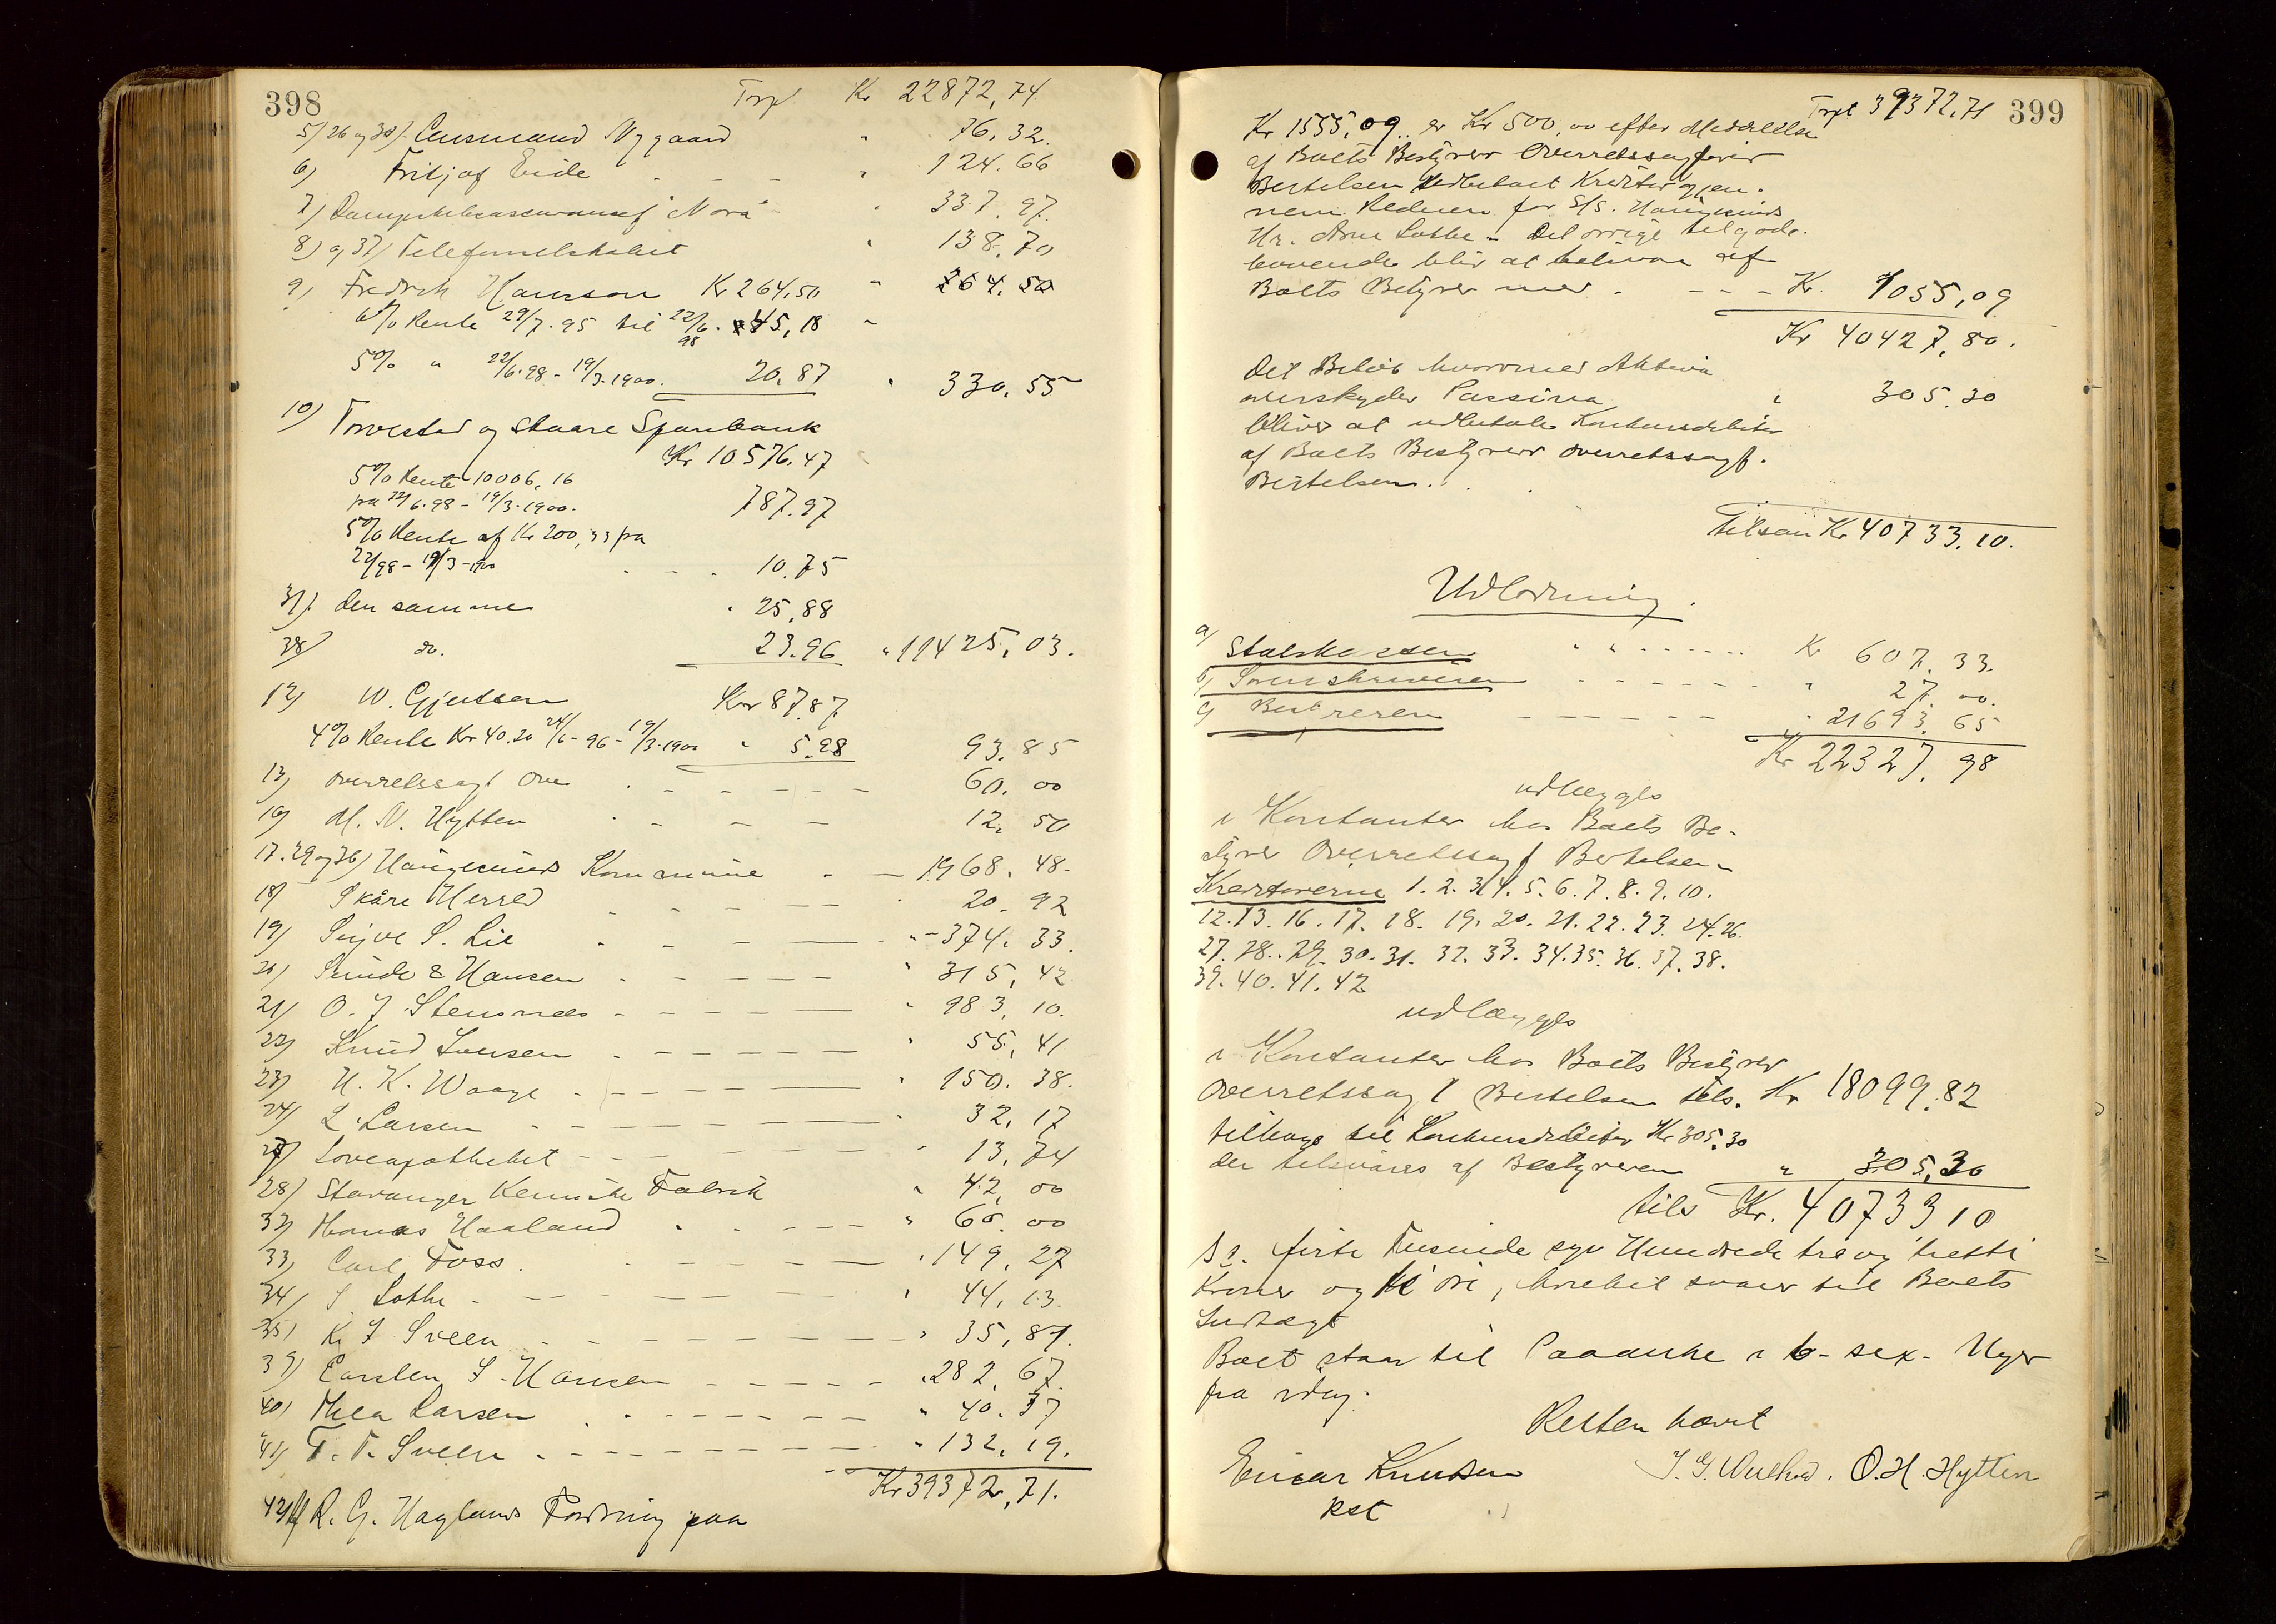 398
Trsp Kr 22872,74
5) 26 og 30) Ausmund Nygaard " 76,32.
6) Fritjof Eide - - - " 124.66
7) Dampskibsassuransef "Nora" " 337.97.
8) og 37) Telefonselskabet " 138.70
9) Fredrik Hansson Kr 264,50 " 264.50
6% Rente 29/7.95 til 22/6.98 45,18 "
5% " 22/6.98 - 19/3.1900. 20.87 " 330.55
10) Torvestad og Skaare Sparebank
Kr 10576.47
5% Rente 10006,16
fra 22/6.98 - 19/3.1900. 787.97
5% Rente af Kr 200,33 fra
22/98 - 19/3 - 1900 . - . 10.75
31) den samme " 25,88
38) do. 23.96 " 11425,03.
12) W. Gjertsen Kr 87.87
4% Rente Kr 40.20 24/6 - 96 - 19/3.1900 " 5.98 93.85
13) Overretssagf Ove . - - - - - 60.00
16) M. N. Hytten . - - - 12,50
17.29 og 36) Haugesunds Kommune - - 1968.48.
18) Skåre Herred - - - - 20.92
19) Sigve S. Lie . - - - " 374.33.
20) Sunde & Hansen - - - - " 315,42
21) O. J Stensnæs - - - - - " 983,10.
22) Knud Iversen - - - - - " 55,41
23) H. K. Waage - - - - - " 150.38.
24) L. Larsen - - - - - - " 32,17
27) Løveapotheket - - - - - " 13,74
28) Stavanger Kemiske Fabrik " 42,00
32) Thomas Haaland . - - - " 60.00
33) Carl Foss . - - - - " 149,27
34) S Lothe - - - - - - " 44,13.
35) K. J Sveen - - - - - - " 35,87.
39) Carsten S. Hansen - - - - " 282,67.
40) Thea Larsen . - - - - " 40.37
41) T. T. Sveen - - - - - - " 132,19.
Kr 39372,71.
42) R. G. Haglands Fordring paa
Trpt 39372,71 399
Kr 1555,09.. er Kr 500,00 efter Meddelelse
af Boets Bestyrer Overretssagfører
Bertelsen udbetalt Kreditor gjen-
nem Rederen for S/S. Haugesund
Hr. Arne Lothe - Det øvrige tilgode-
havende blir at betale af
Boets Bestyrer med - - - - Kr. 1055,09
Kr 40427,80.
Det Beløb hvormed Aktiva
overskyder Passiva " 305.30
bliver at udbetale Konkursdebitor
af Boets Bestyrer Overretssagf.
Bertelsen. . .
tilsam Kr 40733.10.
Udlodning.
a) Statskassen " " - - - - Kr 607.33.
b) Sorenskriveren - - - - - " 27.00.
c) Bestyreren - - - - - " 21693.65
Kr 22327.98
udlægges
i Kontanter hos Boets Be-
styrer Overretssagf Bertelsen
Kreditorerne 1. 2. 3. 4. 5. 6. 7. 8. 9. 10.
12. 13. 16. 17. 18. 19. 20. 21. 22. 23. 24. 26.
27. 28. 29. 30. 31. 32. 33. 34. 35. 36. 37. 38.
39. 40. 41. 42
udlægges
i Kontanter hos Boets Bestyrer
Overretssagf Bertelsen tils. Kr 18099.82
tilbage til Konkursdebitor Kr 305.30
der tilsvares af Bestyreren " 305,30
tils Kr. 40733 10
Sr. firti Tusinde syv Hundrede tre og tretti
Kroner og ti Øre, hvilket svarer til Boets
Indtægt
Boet staar til Paaanke i 6 - sex - Uger
fra idag.
Retten hævet
Einar Knudsen O. H. Hytten
Kst